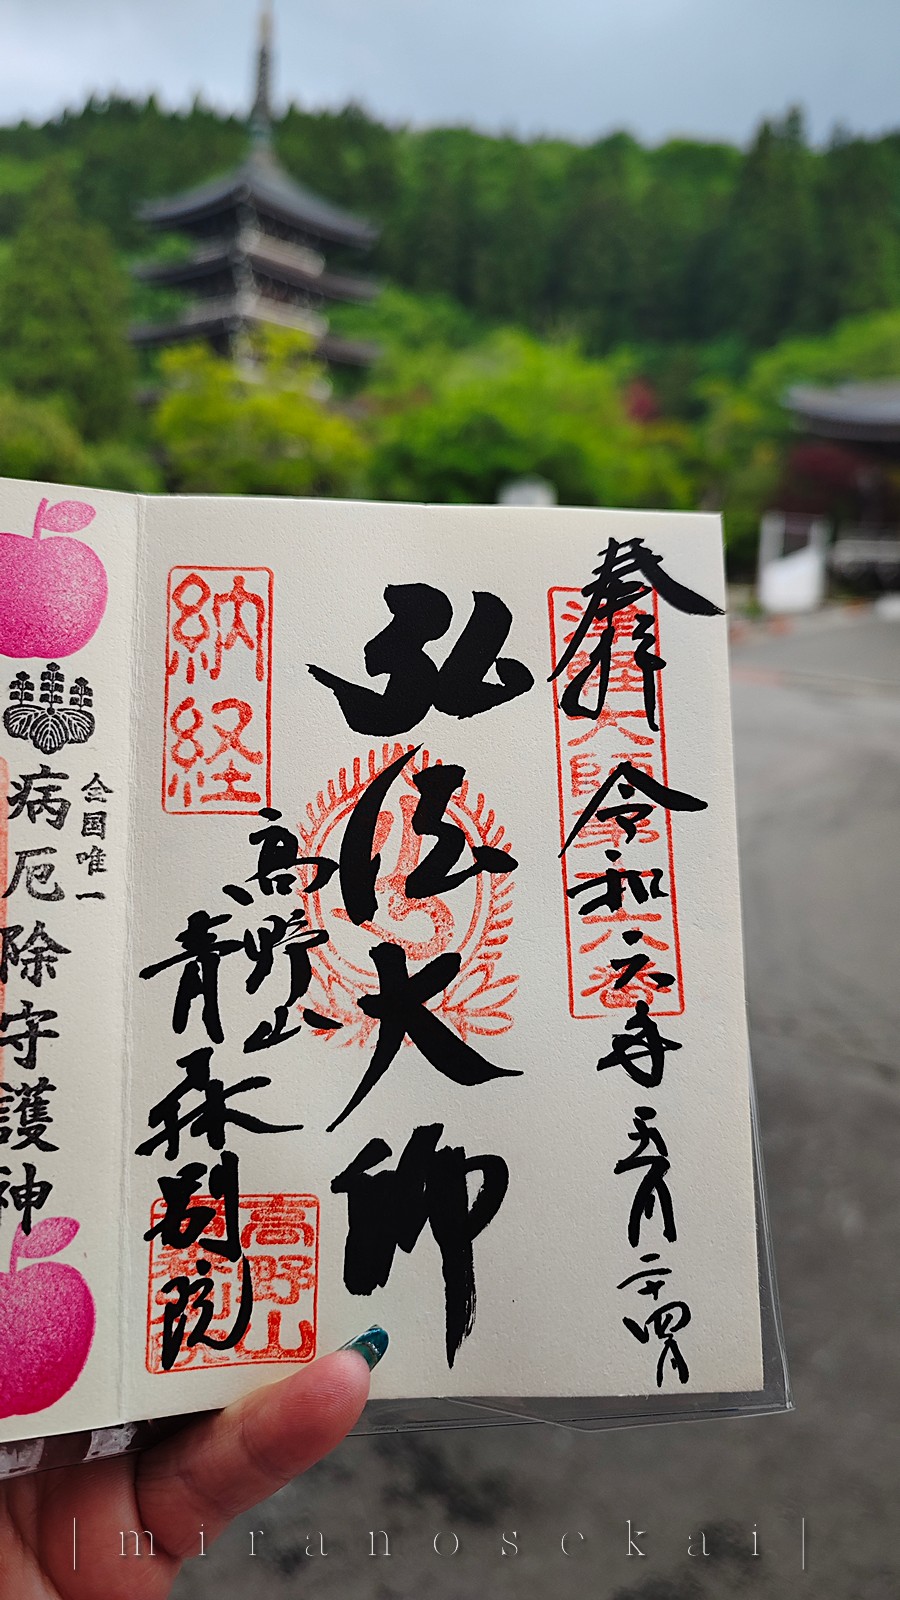 奉拝
令和六年五月二十四日
津軽大師第十六番
弘法大師
納経
高野山
青森別院
高野山
全国唯一
病厄除守護神
|miranosekai|